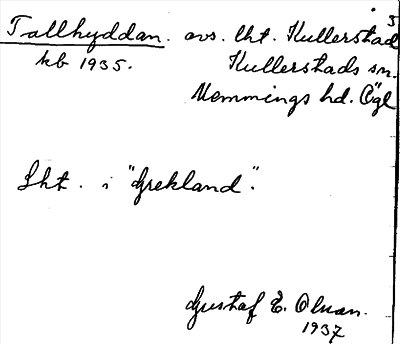 Tallhyddan. avs. lht. Kullerstad
kb 1935. Kullerstads sn.
Memmings hd. Ögl
Lht. i "Grekland".
Gustaf E. Olsson.
1937